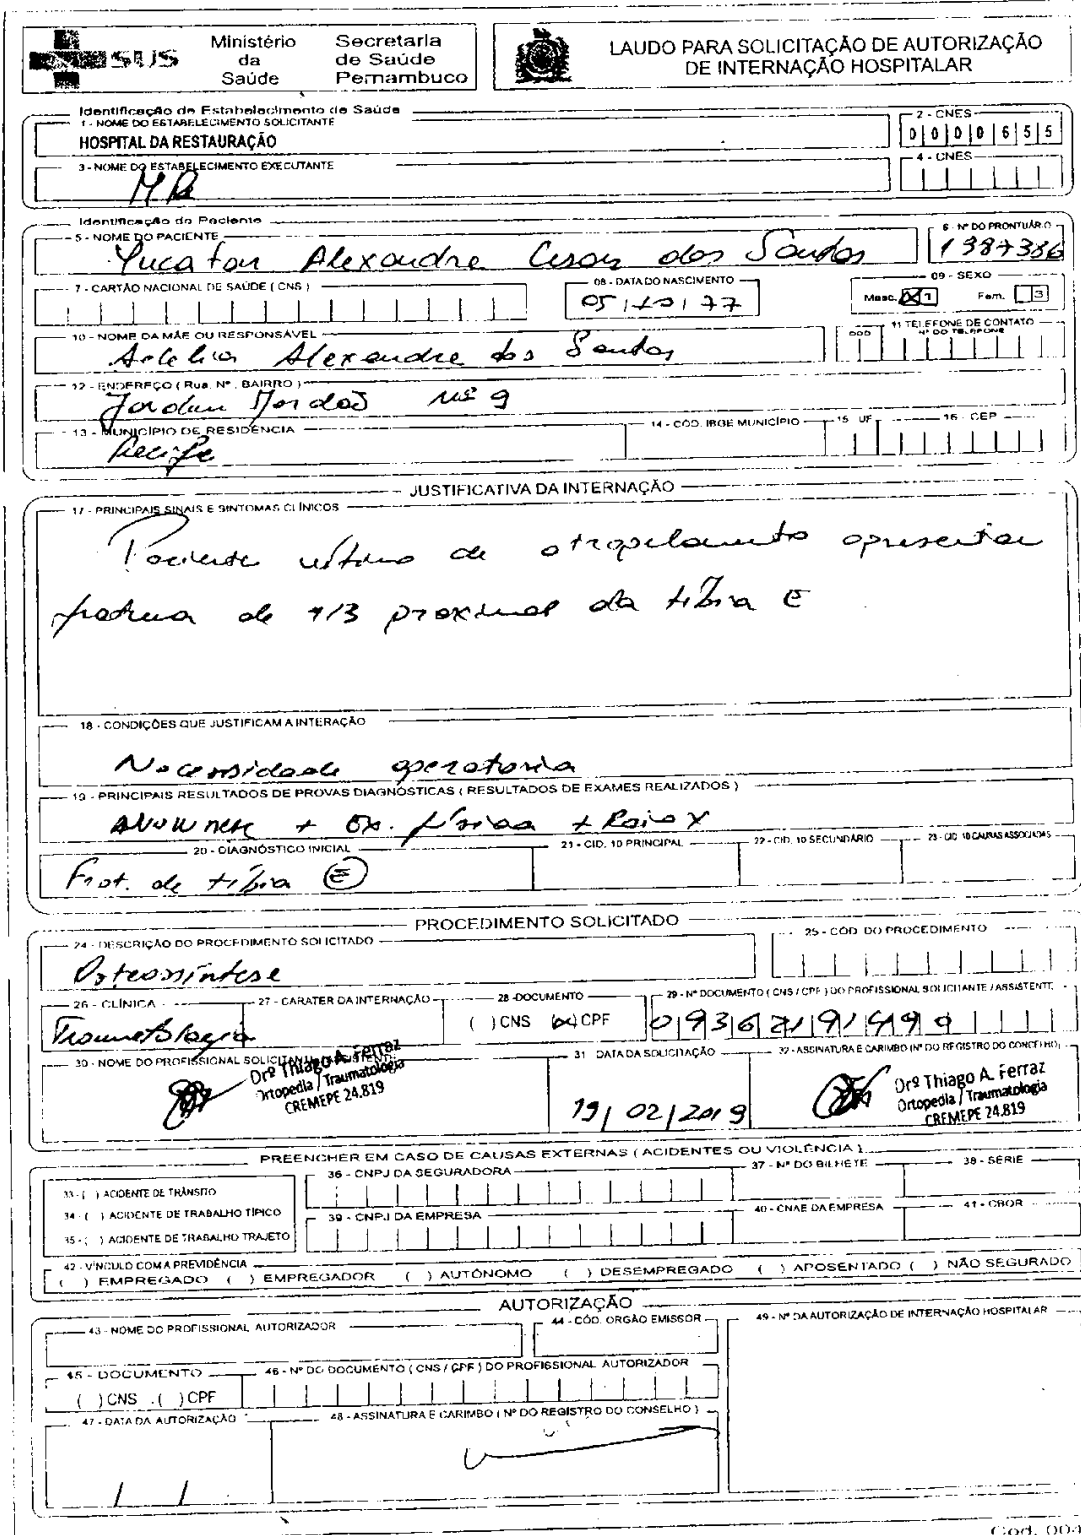 SUS
Ministério da Saúde
Secretaria de Saúde Pernambuco
LAUDO PARA SOLICITAÇÃO DE AUTORIZAÇÃO
DE INTERNAÇÃO HOSPITALAR
Identificação de Estabelecimento de Saúde
1 - NOME DO ESTABELECIMENTO SOLICITANTE
HOSPITAL DA RESTAURAÇÃO
2 - CNES
0 0 0 0 6 5 5
3 - NOME DO ESTABELECIMENTO EXECUTANTE
4 - CNES
Identificação do Paciente
5 - NOME DO PACIENTE
Yucatan Alexandre Cesar dos Santos
6 - Nº DO PRONTUÁRIO
1387336
7 - CARTÃO NACIONAL DE SAÚDE ( CNS )
08 - DATA DO NASCIMENTO
05/10/77
09 - SEXO
Masc. X 1 Fem. 3
10 - NOME DA MÃE OU RESPONSÁVEL
Alexandre dos Santos
11 TELEFONE DE CONTATO
DDD Nº DO TELEFONE
12 - ENDEREÇO ( Rua, Nº, BAIRRO )
Jordão nº 9
13 - MUNICÍPIO DE RESIDÊNCIA
Recife
14 - CÓD. IBGE MUNICÍPIO
15 - UF
16 - CEP
JUSTIFICATIVA DA INTERNAÇÃO
17 - PRINCIPAIS SINAIS E SINTOMAS CLÍNICOS
Paciente vítima de atropelamento apresentar
fratura de 1/3 proximal da tíbia E
18 - CONDIÇÕES QUE JUSTIFICAM A INTERAÇÃO
Necessidade operatoria
19 - PRINCIPAIS RESULTADOS DE PROVAS DIAGNÓSTICAS ( RESULTADOS DE EXAMES REALIZADOS )
+ Ex. físico + Raio X
20 - DIAGNÓSTICO INICIAL
Frat. de tíbia E
21 - CID. 10 PRINCIPAL
22 - CID. 10 SECUNDÁRIO
23 - CID. 10 CAUSAS ASSOCIADAS
PROCEDIMENTO SOLICITADO
24 - DESCRIÇÃO DO PROCEDIMENTO SOLICITADO
Osteossíntese
25 - CÓD. DO PROCEDIMENTO
26 - CLÍNICA
Traumatologia
27 - CARATER DA INTERNAÇÃO
28 - DOCUMENTO
( ) CNS (x) CPF
29 - Nº DOCUMENTO ( CNS / CPF ) DO PROFISSIONAL SOLICITANTE / ASSISTENTE
30 - NOME DO PROFISSIONAL SOLICITANTE / ASSISTENTE
Drº Thiago A. Ferraz
Ortopedia / Traumatologia
CREMEPE 24.819
31 DATA DA SOLICITAÇÃO
19/02/2019
32 - ASSINATURA E CARIMBO (Nº DO REGISTRO DO CONCELHO)
Drº Thiago A. Ferraz
Ortopedia / Traumatologia
CREMEPE 24.819
PREENCHER EM CASO DE CAUSAS EXTERNAS ( ACIDENTES OU VIOLÊNCIA )
33 - ( ) ACIDENTE DE TRÂNSITO
34 - ( ) ACIDENTE DE TRABALHO TÍPICO
35 - ( ) ACIDENTE DE TRABALHO TRAJETO
36 - CNPJ DA SEGURADORA
37 - Nº DO BILHETE
38 - SÉRIE
39 - CNPJ DA EMPRESA
40 - CNAE DA EMPRESA
41 - CBOR
42 - VÍNCULO COM A PREVIDÊNCIA
( ) EMPREGADO ( ) EMPREGADOR ( ) AUTÔNOMO ( ) DESEMPREGADO ( ) APOSENTADO ( ) NÃO SEGURADO
AUTORIZAÇÃO
43 - NOME DO PROFISSIONAL AUTORIZADOR
44 - CÓD. ORGÃO EMISSOR
49 - Nº DA AUTORIZAÇÃO DE INTERNAÇÃO HOSPITALAR
45 - DOCUMENTO
( ) CNS ( ) CPF
46 - Nº DO DOCUMENTO ( CNS / CPF ) DO PROFISSIONAL AUTORIZADOR
47 - DATA DA AUTORIZAÇÃO
/ /
48 - ASSINATURA E CARIMBO ( Nº DO REGISTRO DO CONSELHO )
Cod. 004